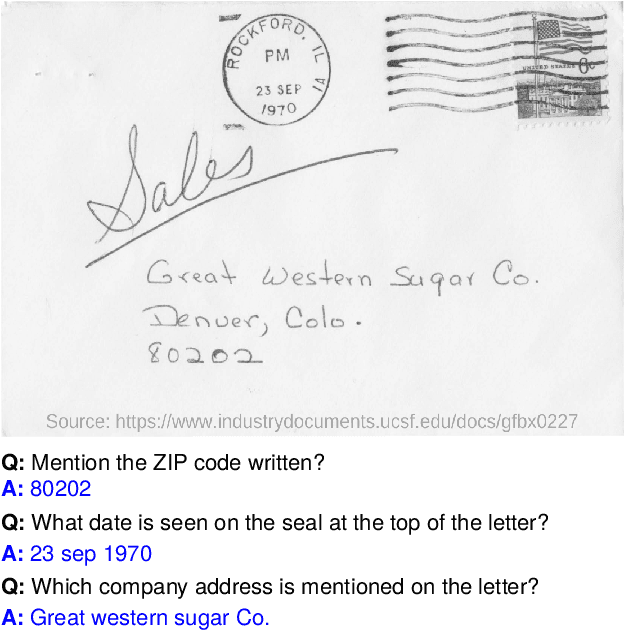 ROCKFORD, IL
PM
23 SEP
1970
UNITED STATES 6c
Sales
Great Western Sugar Co.
Denver, Colo.
80202
Source: https://www.industrydocuments.ucsf.edu/docs/gfbx0227
Q: Mention the ZIP code written?
A: 80202
Q: What date is seen on the seal at the top of the letter?
A: 23 sep 1970
Q: Which company address is mentioned on the letter?
A: Great western sugar Co.